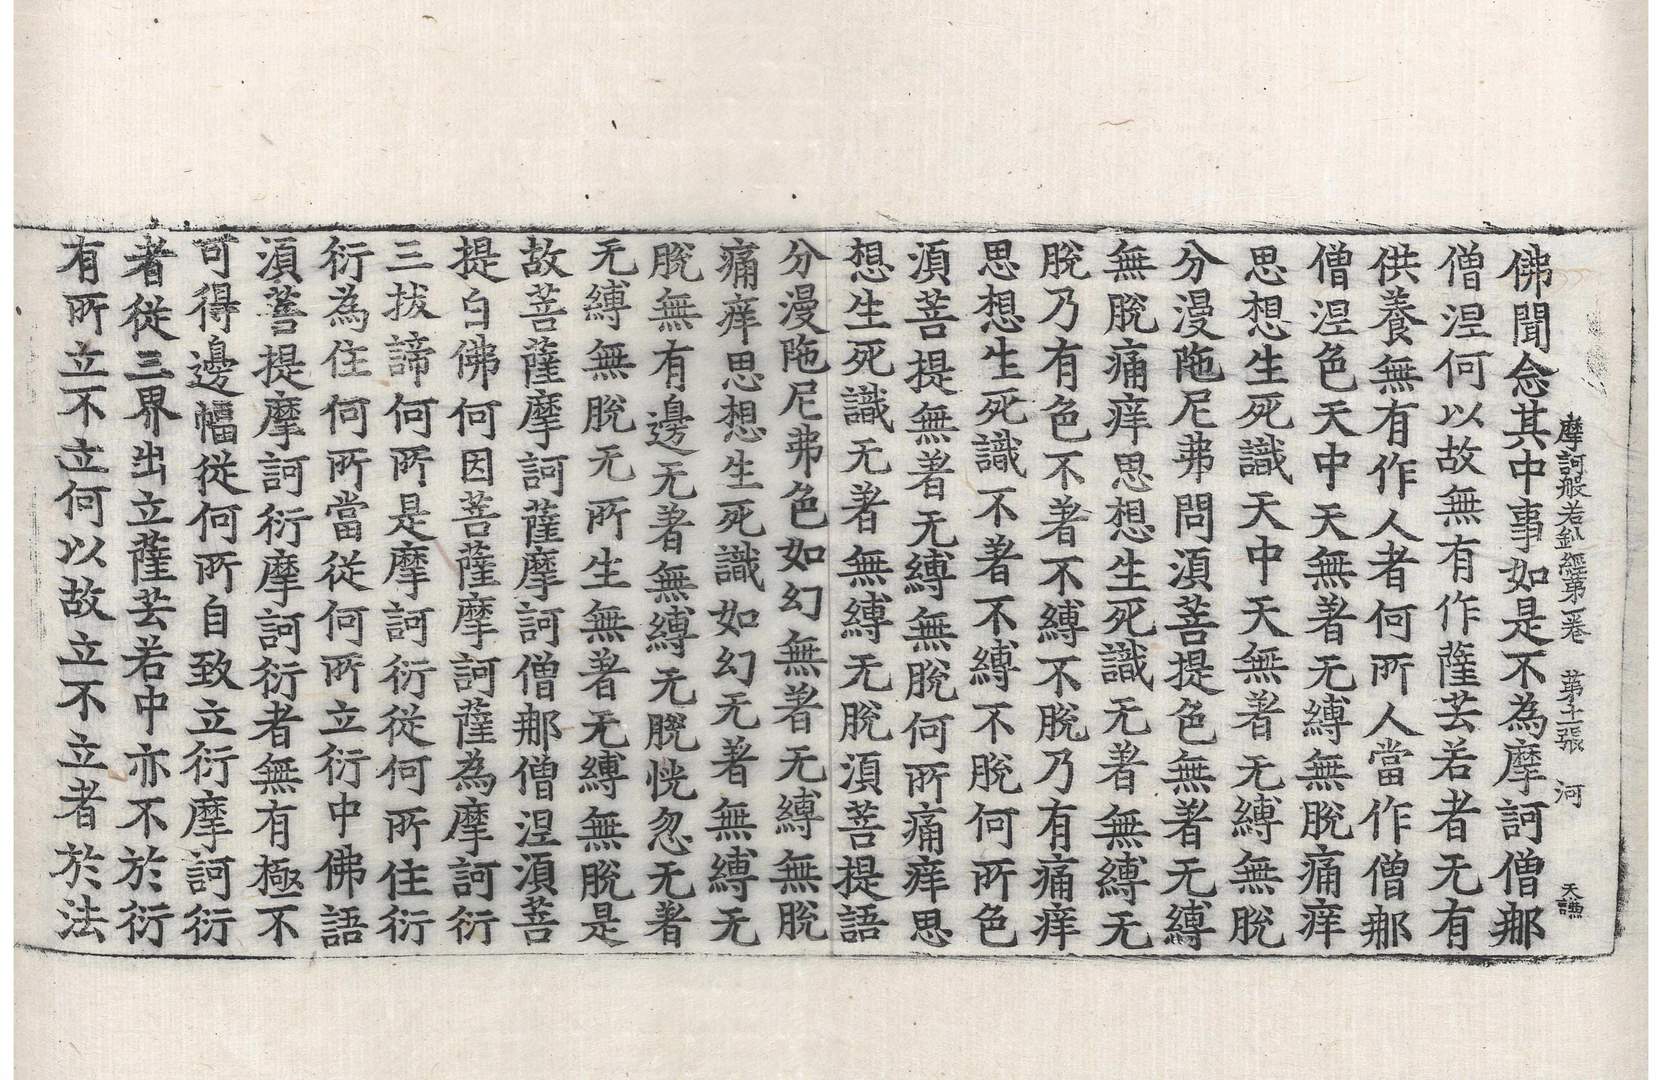 摩訶般若鈔經第一卷　第十一張　河　天譓
佛聞念其中事如是不為摩訶僧郍
僧涅何以故無有作薩芸若者无有
供養無有作人者何所人當作僧郍
僧涅色天中天無著无縛無脫痛痒
思想生死識天中天無著无縛無脫
分漫陁尼弗問湏菩提色無著无縛
無脫痛痒思想生死識无著無縛无
脫乃有色不著不縛不脫乃有痛痒
思想生死識不著不縛不脫何所色
湏菩提無著无縛無脫何所痛痒思
想生死識无著無縛无脫湏菩提語
分漫陁尼弗色如幻無著无縛無脫
痛痒思想生死識如幻无著無縛无
脫無有邊无著無縛无脫恍忽无著
无縛無脫无所生無著无縛無脫是
故菩薩摩訶薩摩訶僧郍僧涅湏菩
提白佛何因菩薩摩訶薩為摩訶衍
三拔諦何所是摩訶衍從何所住衍
衍為住何所當從何所立衍中佛語
湏菩提摩訶衍摩訶衍者無有極不
可得邊幅從何所自致立衍摩訶衍
者從三界出立薩芸若中亦不於衍
有所立不立何以故立不立者於法